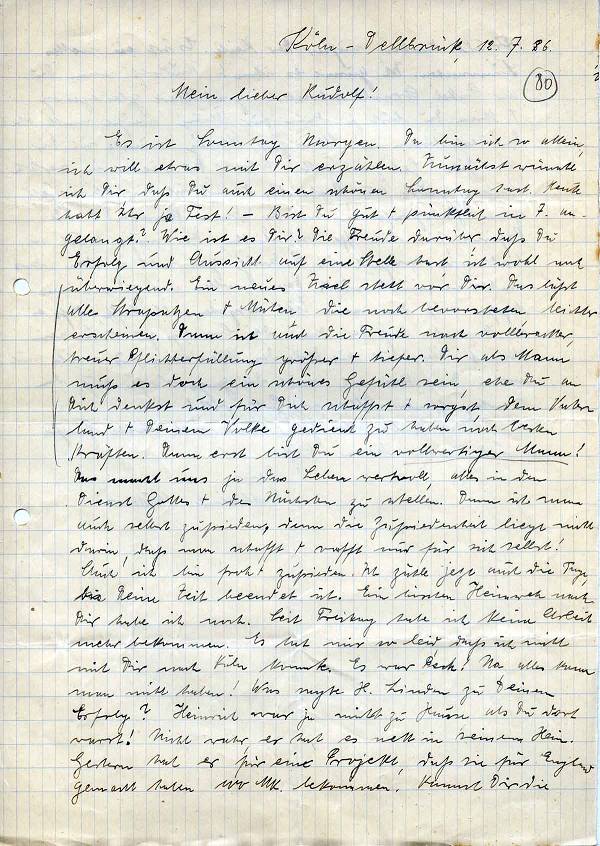 Köln-Dellbrück, 12. 7. 36.
(80)
Mein lieber Rudolf!
Es ist Sonntag Morgen. Da bin ich so allein,
ich will etwas mit Dir erzählen. Zunächst wünsche
ich Dir daß Du auch einen schönen Sonntag hast. Heute
habt Ihr ja Fest! – Bist Du gut + pünktlich in J. an-
gelangt? Wie ist es Dir? Die Freude darüber daß Du
Erfolg und Aussicht auf eine Stelle hast ist wohl noch
überwiegend. Ein neues Ziel steht vor Dir. Das läßt
alle Strapatzen + Mühen die noch bevorstehen leichter
erscheinen. Dann ist auch die Freude nach vollbrachter,
treuer Pflichterfüllung größer + tiefer. Dir als Mann
muß es doch ein schönes Gefühl sein, ehe Du an
Dich denkst und für Dich schaffst + sorgst, dem Vater-
land + Deinem Volke gedient zu haben nach besten
Kräften. Dann erst bist Du ein vollwertiger Mann!
Das macht uns ja das Leben wertvoll, alles in den
Dienst Gottes + des Nächsten zu stellen. Dann ist man
auch selbst zufrieden, denn die Zufriedenheit liegt nicht
darin, daß man schafft + rafft nur für sich selbst!
Auch ich bin froh + zufrieden. Ich zähle jetzt auch die Tage,
bis Deine Zeit beendet ist. Ein bissen Heimweh nach
Dir habe ich noch. Seit Freitag habe ich keine Arbeit
mehr bekommen. Es tut mir so leid, daß ich nicht
mit Dir nach Köln konnte. Es war Pech! Na alles kann
man nicht haben! Was sagte H. Linden zu Deinem
Erfolg? Heinrich war ja nicht zu Hause als Du dort
warst! Nicht wahr, er hat es nett in seinem Heim.
Gestern hat er für eine Projekt, daß sie für England
gemacht haben Mk. bekommen. Kannst Dir die